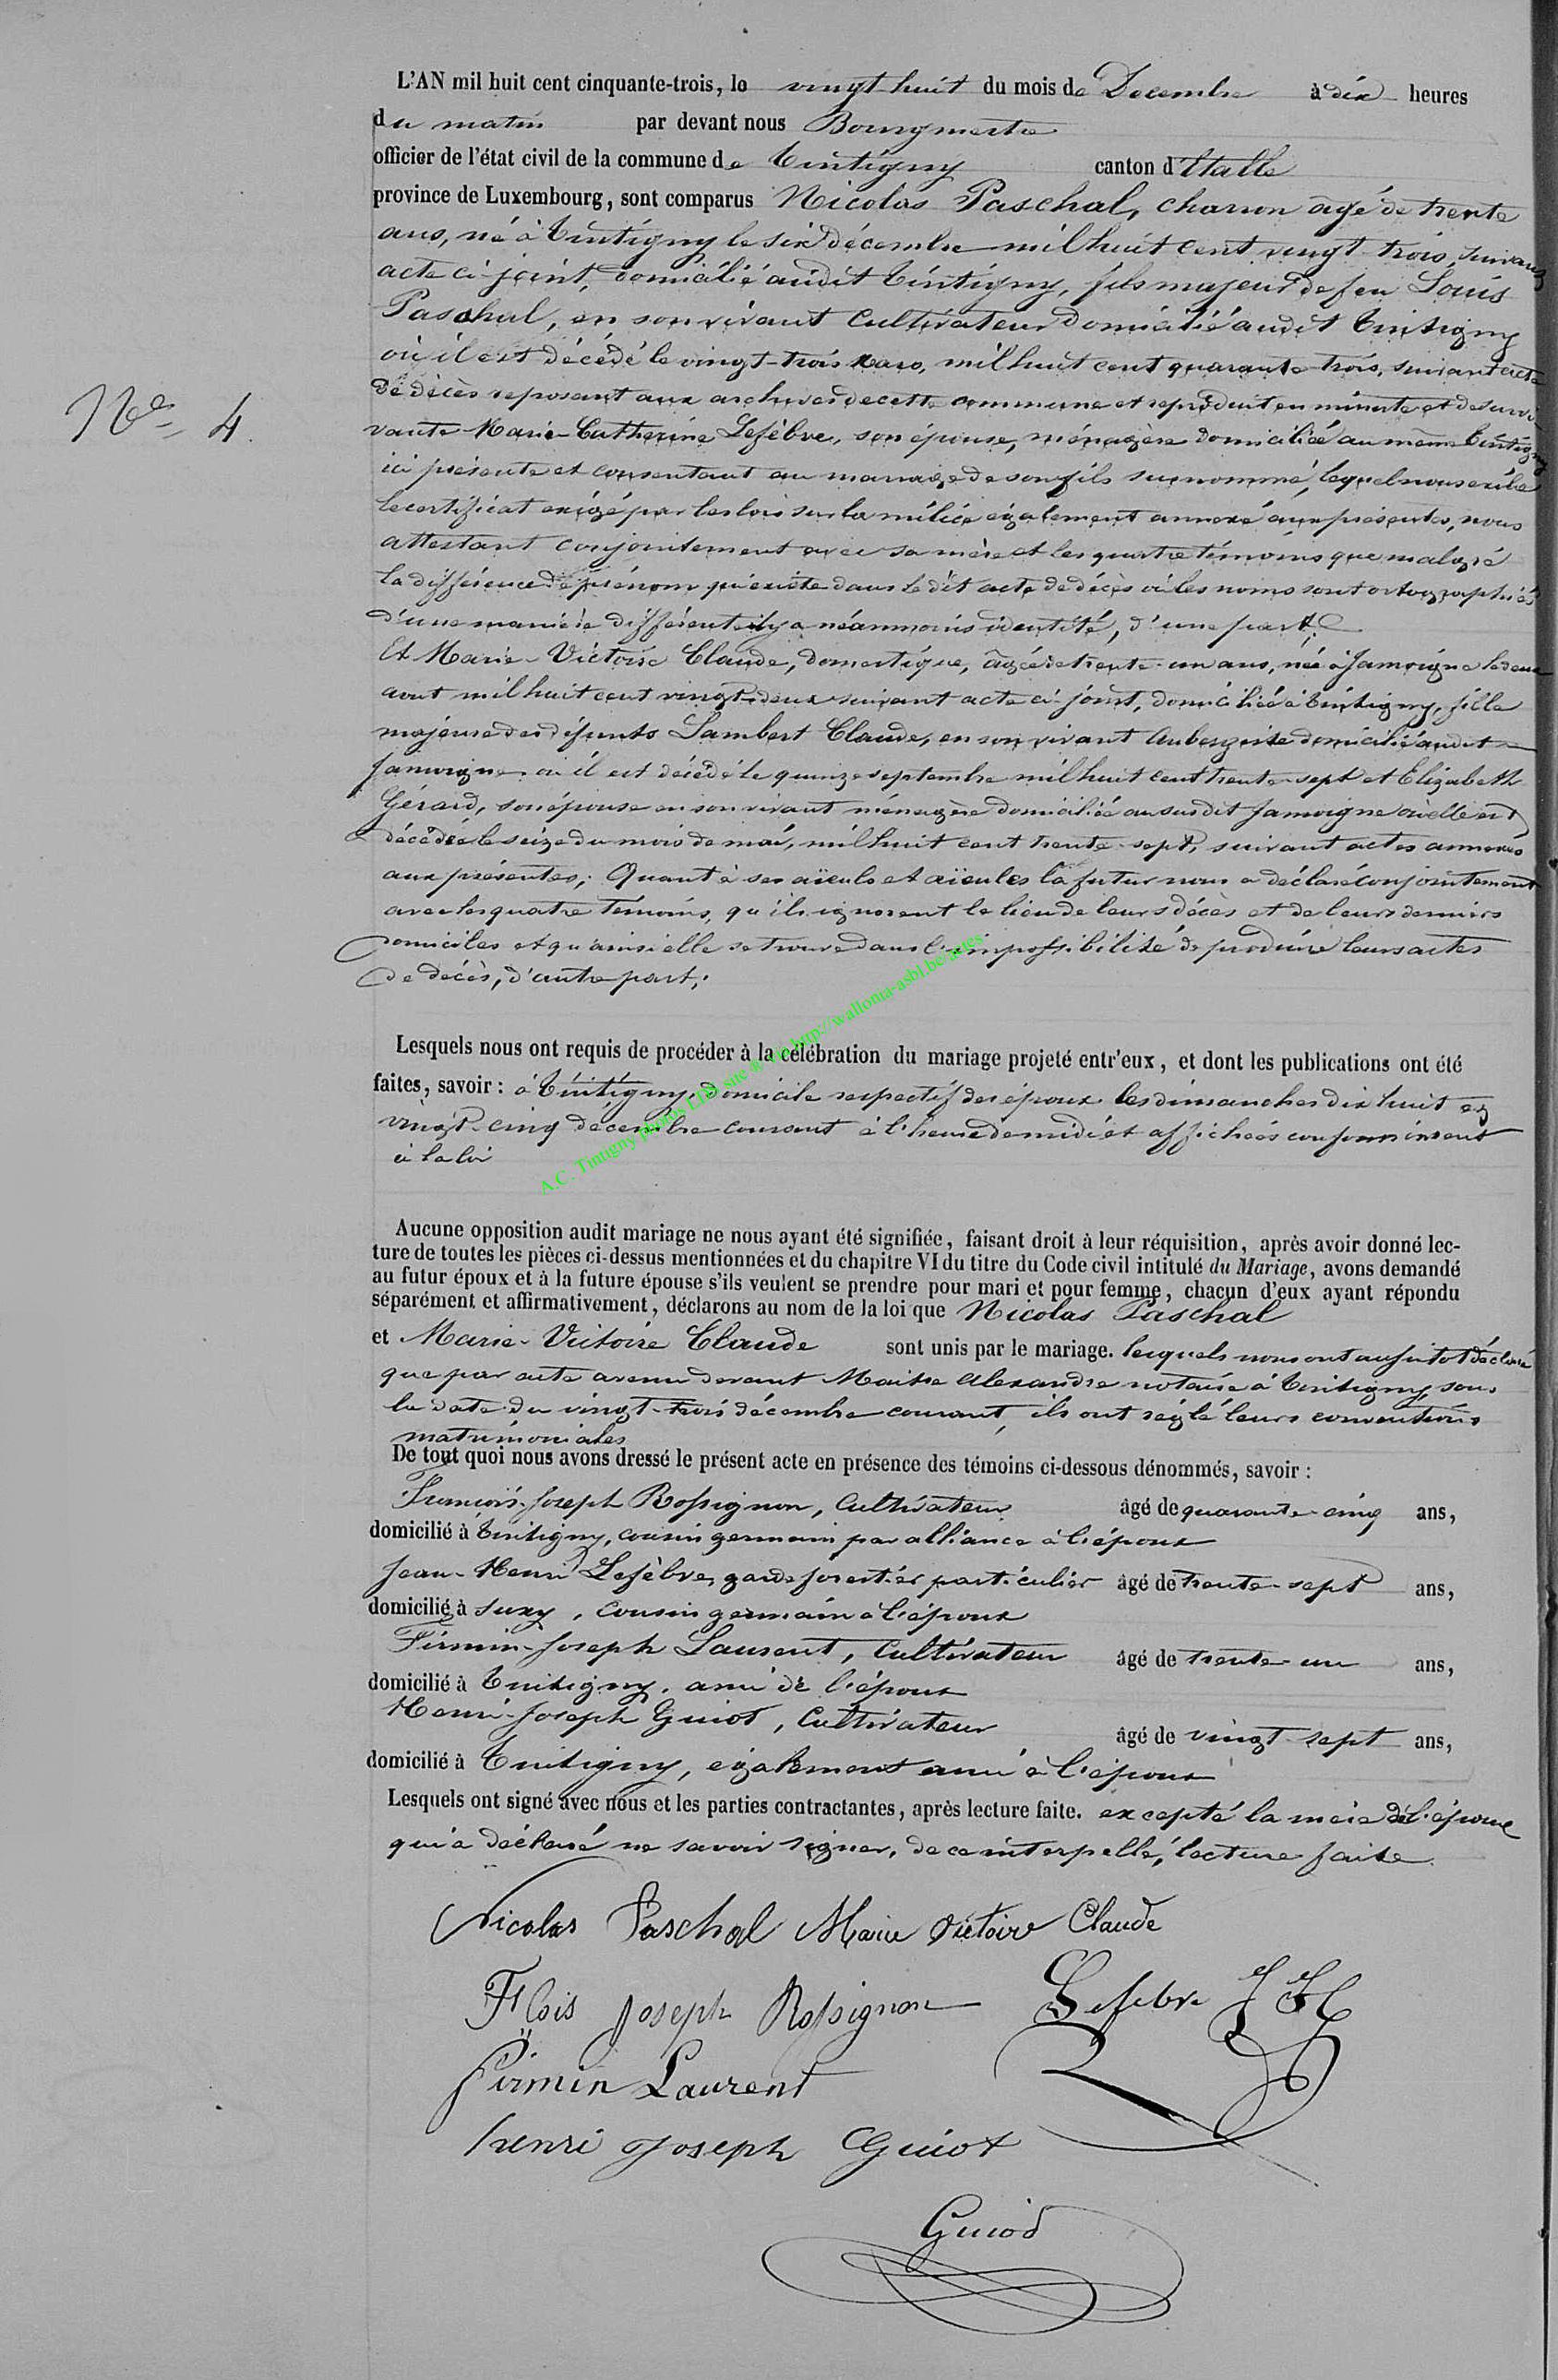 L'AN mil huit cent cinquante-trois, le vingt huit du mois de Decembre à dix heures
du matin par devant nous Bourgmestre
officier de l'état civil de la commune de Tintigny canton d'Etalle
province de Luxembourg, sont comparus Nicolas Paschal, charron âgé de trente
ans, né à Tintigny le six décembre mil huit cent vingt-trois, suivant
acte ci-joint, domicilié audit Tintigny, fils majeur de feu Louis
Paschal, en son vivant Cultivateur domicilié audit Tintigny
où il est décédé le vingt-trois mars, mil huit cent quarante-trois, suivant acte
de décès reposant aux archives de cette commune et reproduit en minute et de survi-
vante Marie-Catherine Lefèbvre, son épouse, ménagère domiciliée au même Tintigny
ici présente et consentant au mariage de son fils surnommé, lequel nous exibe
le certificat exigé par les lois sur la milice également annexé aux présentes, nous
attestant conjointement avec sa mère et les quatre témoins que malgré
la différence de prénom qui existe dans le dit acte de décès où les noms sont ortographiés
d'une manière différente il y a néanmoins identité, d'une part.
Et Marie-Victoire Claude, domestique, âgée de trente-un ans, née à Jamoigne le deux
aout mil huit cent vingt-deux suivant acte ci-joint, domiciliée à Tintigny, fille
majeure des défunts Lambert Claude, en son vivant Aubergiste domicilié audit
Jamoigne où il est décédé le quinze septembre mil huit cent trente-sept et Elizabeth
Gérard, son épouse en son vivant ménagère domiciliée au susdit Jamoigne où elle est
décédée le seize du mois de mai, mil huit cent trente-sept, suivant actes annexés
aux présentes; Quant à ses aïeuls et aïeules la futur nous a déclaré conjointement
avec les quatre témoins, qu'ils ignorent le lieu de leurs décès et de leurs derniers
domiciles et qu'ainsi elle se trouve dans l'impossibilité de produire leurs actes
de décès, d'autre part;
A.C. Tintigny photos LDI site & via http://wallonia-asbl.be/actes
Lesquels nous ont requis de procéder à la célébration du mariage projeté entr'eux, et dont les publications ont été
faites, savoir : à Tintigny, domicile respectif des époux les dimanches dix huit et
vingt-cinq décembre courant à l'heure de midi et affichées conformément
à la loi
Aucune opposition audit mariage ne nous ayant été signifiée, faisant droit à leur réquisition, après avoir donné lec-
ture de toutes les pièces ci-dessus mentionnées et du chapitre VI du titre du Code civil intitulé du Mariage, avons demandé
au futur époux et à la future épouse s'ils veulent se prendre pour mari et pour femme, chacun d'eux ayant répondu
séparément et affirmativement, déclarons au nom de la loi que Nicolas Paschal
et Marie-Victoire Claude sont unis par le mariage. lesquels nous ont aussitot déclaré
que par acte avenu devant Maitre Alexandre notaire à Tintigny, sous
la date du vingt-trois décembre courant, ils ont réglé leurs conventions
matrimoniales
De tout quoi nous avons dressé le présent acte en présence des témoins ci-dessous dénommés, savoir :
François-Joseph Rossignon, Cultivateur âgé de quarante-cinq ans,
domicilié à Tintigny, cousin germain par alliance à l'époux
Jean-Henri Lefèbvre, garde forestier particulier âgé de trente-sept ans,
domicilié à Suxy, Cousin germain à l'époux
Firmin-Joseph Laurent, Cultivateur âgé de trente-un ans,
domicilié à Tintigny, ami de l'époux
Henri-Joseph Guiot, Cultivateur âgé de vingt-sept ans,
domicilié à Tintigny, également ami à l'époux
Lesquels ont signé avec nous et les parties contractantes, après lecture faite. excepté la mère de l'époux
qui a déclaré ne savoir signer, de ce interpellé, lecture faite.
Nicolas Paschal Marie Victoire Claude
Flois Joseph Rossignon Lefebvre J H
Firmin Laurent
henri Joseph Guiot
Guiod
No 4.